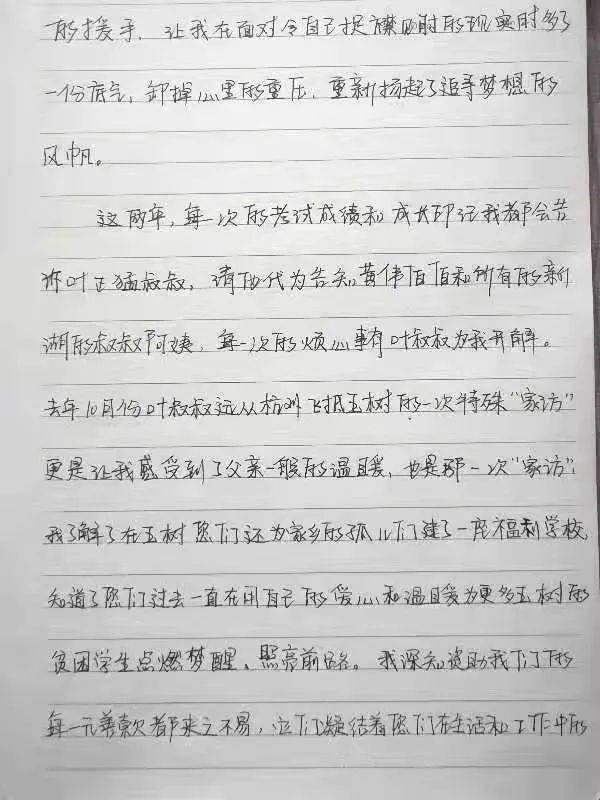 的援手，让我在面对令自己捉襟见肘的现实时多了
一份底气，卸掉心里的重压，重新扬起了追寻梦想的
风帆。
这两年，每一次的考试成绩和成长印记我都会告
诉叶正猛叔叔，请他代为告知黄伟伯伯和所有的新
湖的叔叔阿姨，每一次的烦心事有叶叔叔为我开解。
去年10月份叶叔叔远从杭州飞抵玉树的一次特殊“家访”
更是让我感受到了父亲一般的温暖，也是那一次“家访”，
我了解了在玉树您们还为家乡的孤儿们建了一座福利学校，
知道了您们过去一直在用自己的爱心和温暖为更多玉树的
贫困学生点燃梦醒，照亮前路。我深知资助我们的
每一元善款都来之不易，它们凝结着您们在生活和工作中的